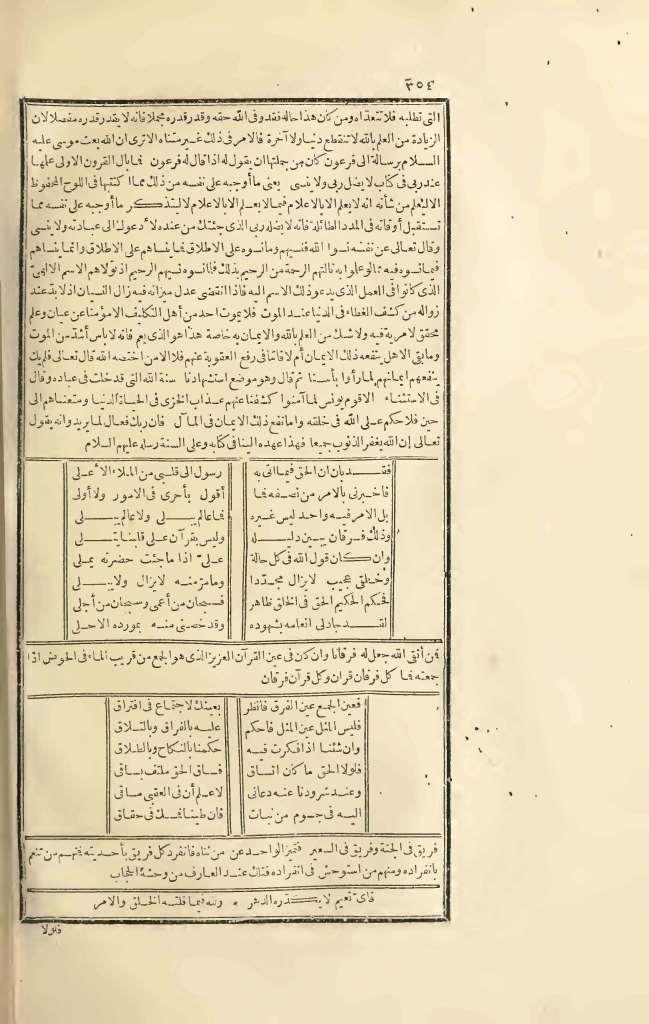 ٣٥٤
التى تطلبه فلا تتعداه ومن كان هذا حاله فقد وفى الله حقه وقدر قدره مجملا فانه لا يقدر قدره مفصلا لان
الزيادة من العلم بالله لا تنقطع دنيا ولا آخرة فالامر فى ذلك غير متناه الاترى ان الله بعث موسى عليه
السلام برسالة الى فرعون كان من جملتها ان يقول له اذا قال له فرعون فما بال القرون الاولى علمها
عند ربى فى كتاب لا يضل ربى ولا ينسى يعنى ما أوجبه على نفسه من ذلك مما كتبها فى اللوح المحفوظ
الا ليعلم من شأنه انه لا يعلم الا بالاعلام فيما لا يعلم الا بالاعلام لا ليتذكر ما أوجبه على نفسه مما
تستقبل أوقاته فى المدد الطائلة فانه لا يضل ربى الذى جئتك من عنده لأدعوك الى عبادته ولا ينسى
وقال تعالى عن نفسه نسوا الله فنسيهم ومانسوه على الاطلاق فما ينساهم على الاطلاق وانما ينساهم
فيما نسوه فيه مما لو عملوا به نالتهم الرحمة من الرحيم بذلك فلما نسوه نسيهم الرحيم اذ تولاهم الاسم الالهىّ
الذى كانوا فى العمل الذى يدعو ذلك الاسم اليه فاذا انقضى عدل ميزانه فيه زال النسيان اذ لا بد عند
زواله من كشف الغطاء فى الدنيا عند الموت فلا يموت احد من أهل التكليف الا مؤمنا عن عيان وعلم
محقق لا مرية فيه ولا شك من العلم بالله والايمان به خاصة هذا هو الذى يعم فانه لا بأس أشد من الموت
وما بقى الا هل ينفعه ذلك الايمان أم لا فاتنا فى رفع العقوبة عنهم فلا الا من اختصه الله قال تعالى فلم يك
ينفعهم ايمانهم لما رأوا بأسنا ثم قال وهو موضع استشهادنا سنة الله التى قد خلت فى عباده وقال
فى الاستثناء الا قوم يونس لما آمنوا كشفنا عنهم عذاب الخزى فى الحياة الدنيا ومتعناهم الى
حين فلا حكم على الله فى خلقه واما نفع ذلك الايمان فى المآل فان ربك فعال لما يريد وانه يقول
تعالى إن الله يغفر الذنوب جميعا فهذا عهده الينا فى كتابه وعلى السنة رسله عليهم السلام
فقد بان ان الحق فيما اتى به رسول الى قلبى من الملاء الأعلى
فاخبرنى بالامر من نصفه فما أقول بأحرى فى الامور ولا أولى
بل الامر فيه واحد ليس غيره فما عالم يبلى ولا عالم يبلى
وذلك فرقان يبين دليله وليس بقرآن على قلبنا يتلى
وان كان قول الله فى كل حالة علىّ اذا ما جئت حضرته يملى
وخلقى عجيب لا يزال مجددا وما مرّ منه لا يزال ولا يبلى
فحكم الحكيم الحق فى الخلق ظاهر فسبحان من أعمى وسبحان من أجلى
لقد جاد لى انعامه بشهوده وقد خصنى منه بمورده الاحلى
فمن أتقى الله جعل له فرقانا وان كان فى عين القرآن العزيز الذى هو الجمع من قريت الماء فى الحوض اذا
جمعته فما كل فرقان قران وكل قرآن فرقان
فعين الجمع عين الفرق فانظر بعينك لاجتماع فى افتراق
فليس المثل عين المثل فاحكم عليه بالفراق وبالتلاق
وان شئنا اذا فكرت فيه حكمنا بالنكاح وبالطلاق
فلولا الحق ما كان اتساق فساق الحق ملتف بساقى
وعند شرودنا عنه دعانى لاعلم أن فى العقبى مساقى
اليه فى جسوم من نبات فان طيننا فشك فى حقاق
فريق فى الجنة وفريق فى السعير فتميز الواحد عن من ثناه فانفرد كل فريق بأحديته فمنهم من تنعم
بانفراده ومنهم من استوحش فى انفراده فتلك عند العارف من وحشة الحجاب
فاى نعيم لا يكدره الدهر * ولله فيما قلته الخلق والامر
فلولا